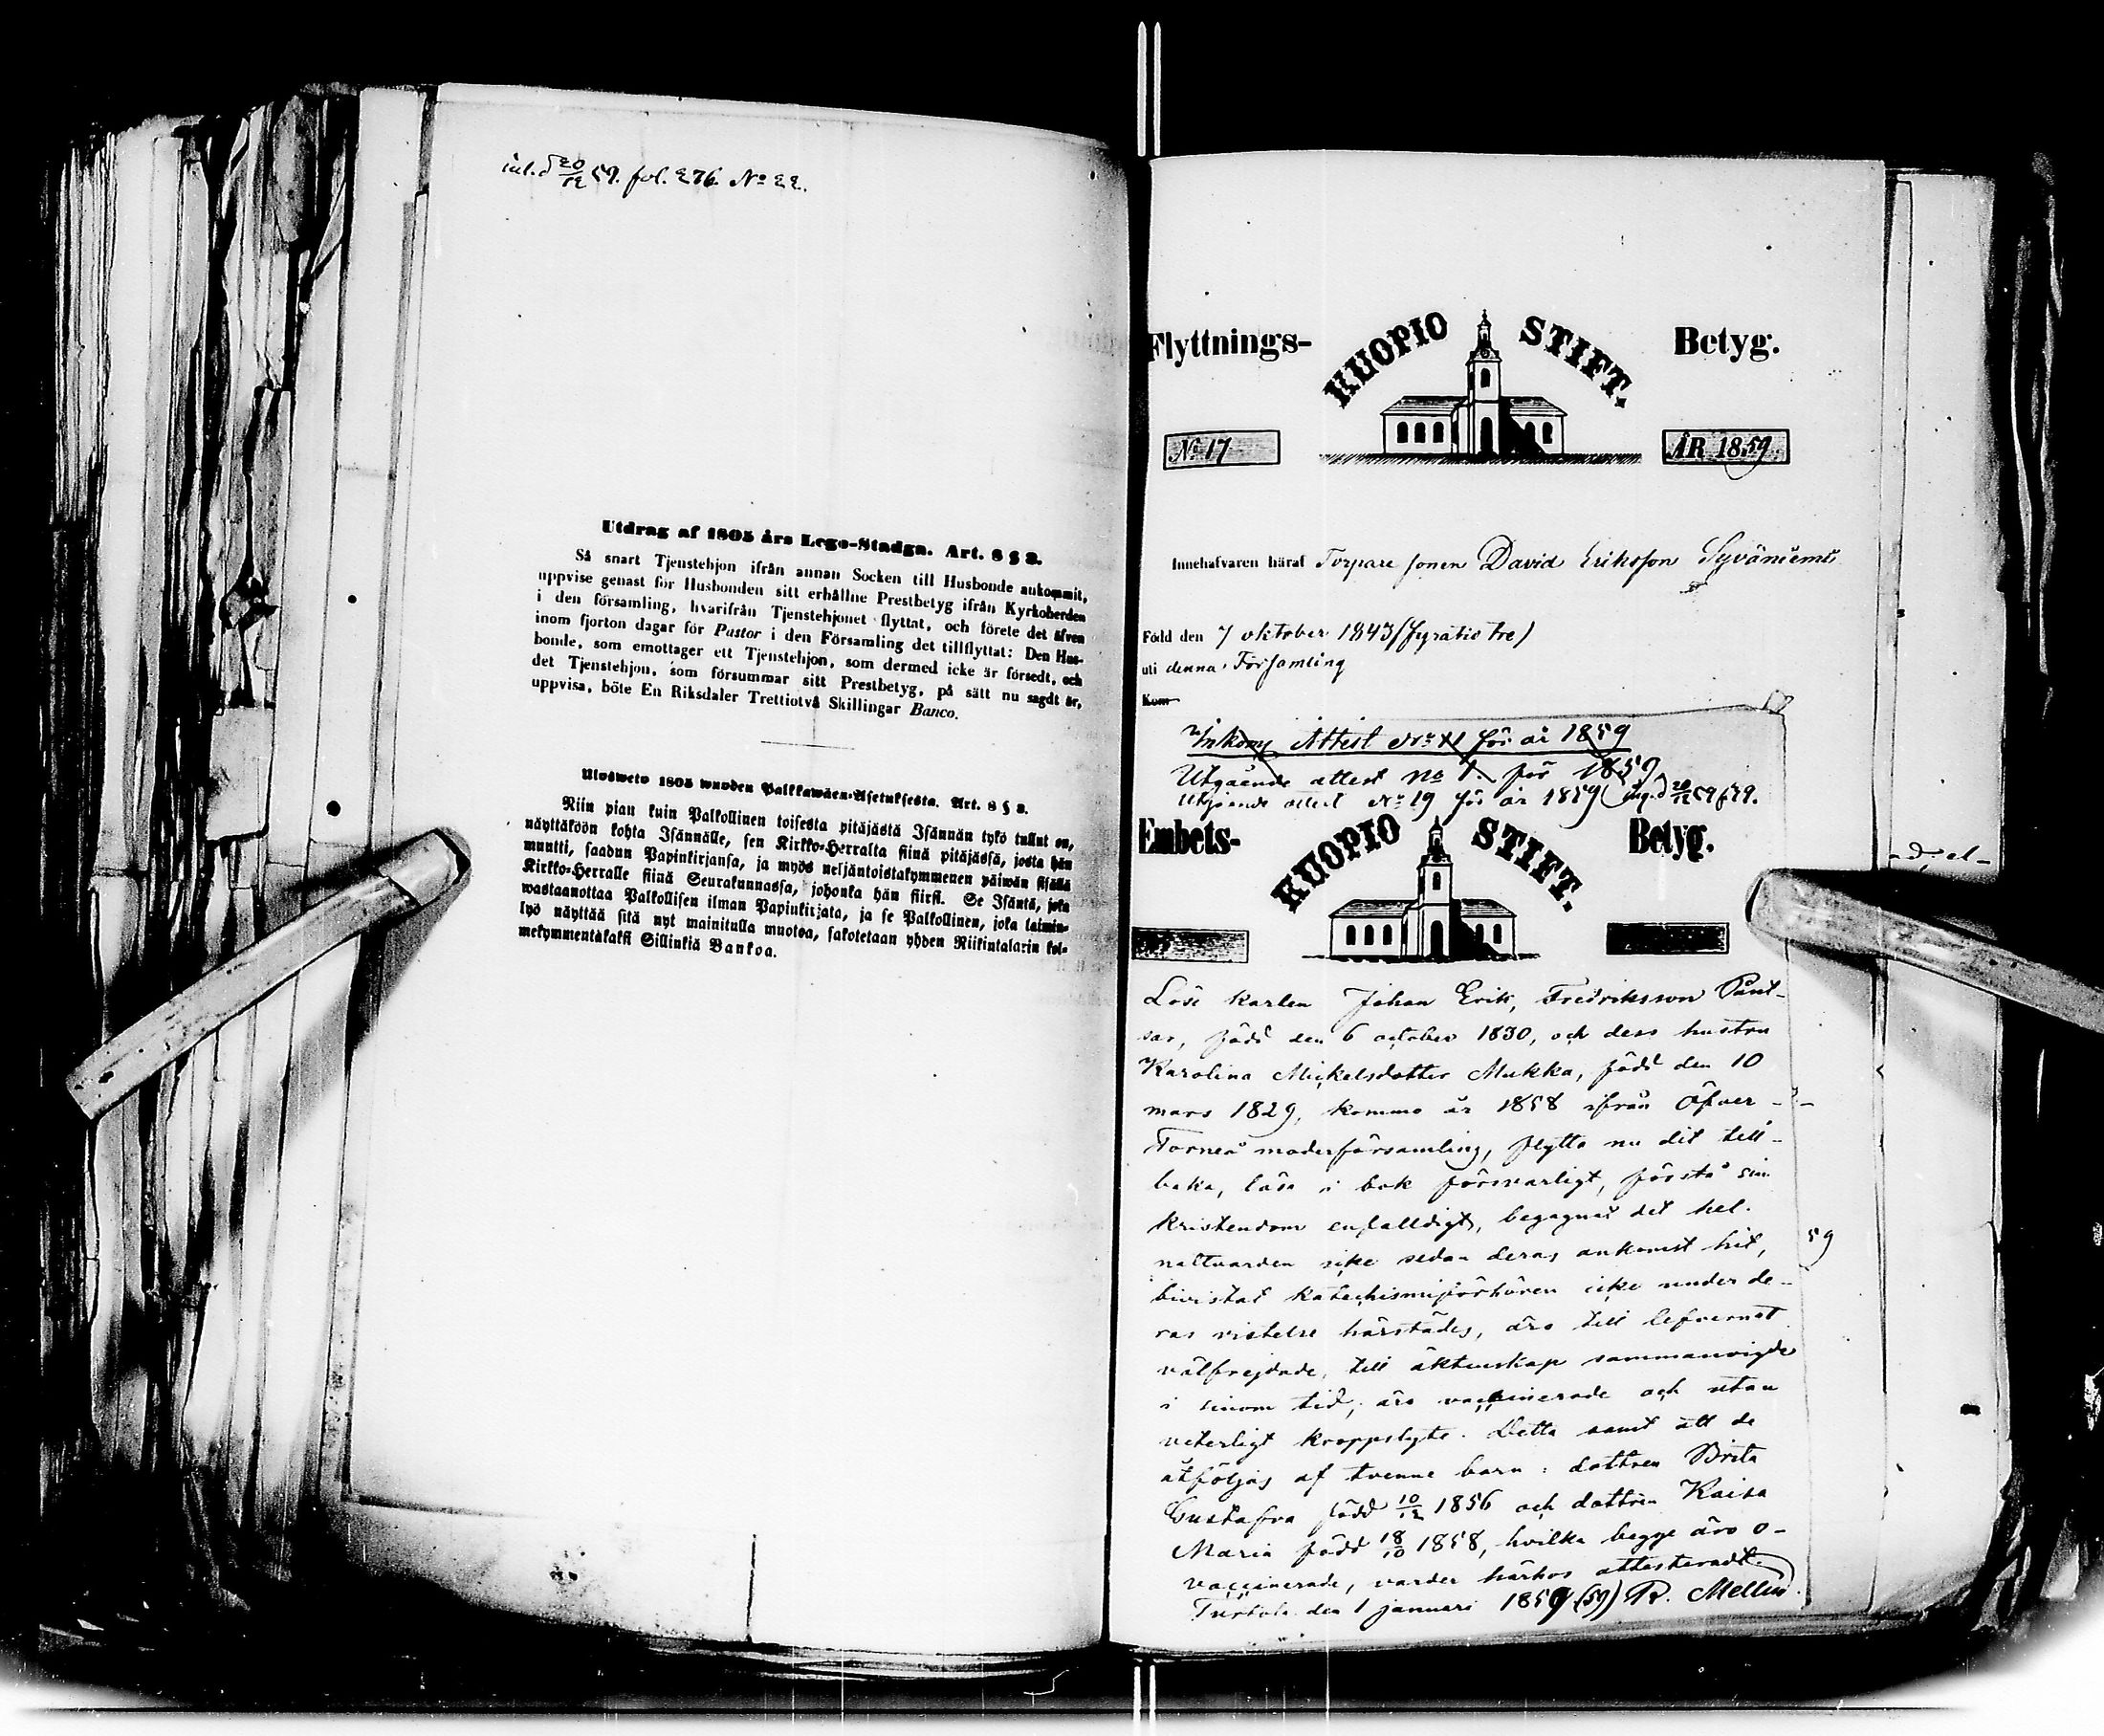 inl. d 20/12 59. fol. 276. No 22.
Utdrag af 1805 års Lego-Stadga. Art. 8 § 2.
Så snart Tjenstehjon ifrån annan Socken till Husbonde ankommit,
uppvise genast för Husbonden sitt erhållne Prestbetyg ifrån Kyrkoherden
i den församling, hvarifrån Tjenstehjonet flyttat, och förete det äfven
inom fjorton dagar för Pastor i den Församling det tillflyttat: Den Hus-
bonde, som emottager ett Tjenstehjon, som dermed icke är försedt, och
det Tjenstehjon, som försummar sitt Prestbetyg, på sätt nu sagdt är,
uppvisa, böte En Riksdaler Trettiotvå Skillingar Banco.
Ulosweto 1805 wuoden Palkkawäen-Asetuksesta. Art. 8 § 2.
Niin pian kuin Palkollinen toisesta pitäjästä Isännän tykö tullut on,
näyttäköön kohta Isännälle, sen Kirkko-Herralta siinä pitäjässä, josta hän
muutti, saadun Papinkirjansa, ja myös neljäntoistakymmenen päiwän sisällä
Kirkko-Herralle siinä Seurakunnassa, johonka hän siirsi. Se Isäntä, joka
wastaanottaa Palkollisen ilman Papinkirjata, ja se Palkollinen, joka laimin-
lyö näyttää sitä nyt mainitulla muotoa, sakotetaan yhden Riikintalarin kol-
mekymmentäkaksi Sillinkiä Bankoa.
Flyttnings- KUOPIO STIFT. Betyg.
No 17 ÅR 1859
Innehafvaren häraf Torpare sonen David Eriksson Syväniemi
Född den 7 oktober 1843 (fyratio tre)
uti denna Församling
Kom
Inkomg Attest No XI för år 1859
Utgående attest No 1. för 1859
Utgående attest No 19 för år 1859 (ing. d 20/12 59 f 79.
Embets- KUOPIO STIFT. Betyg.
Löse karlen Johan Erik, Fredriksson Pant-
sar, född den 6 october 1830, och dess hustru
Karolina Mickelsdotter Mukka, född den 10
mars 1829, komme år 1858 ifrån Öfver-
Torneå moderförsamling, flytta nu dit till-
baka, läsa i bok försvarligt, förstå sin
kristendom enfalldigt, begagnat det hel.
nattvarden icke sedan deras ankomst hit,
bivistat katechismiförhören icke under de-
ras vistelse härstädes, äro till lefvernet
välfrejdade, till äktenskap sammanvigde
i sinom tid, äro vaccinerade och utan
veterligt kroppslyte. Detta samt att de
åtföljas af tvenne barn: dottren Brita
Gustafva född 10/12 1856 och dottren Kaisa
Maria född 18/10 1858, hvilka begge äro o-
vaccinerade, varder härhos attesteradt.
Turtola den 1 januari 1859 (59) R. Mellin.
59